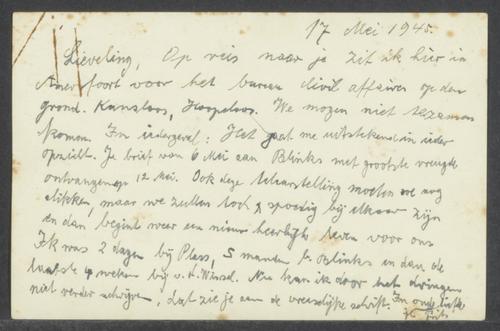 17 Mei 1945.
Lieveling, Op reis naar je zit ik hier in
Amersfoort voor het bureau civil affaires op den
grond. Kansloos, Hopeloos. We mogen niet tezamen
komen. In iedergeval: Het gaat me uitstekend in ieder
opzicht. Je brief van 6 Mei aan Blinks met grootste vreugde
ontvangen op 12 Mei. Ook deze teleurstelling moeten we nog
slikken, maar we zullen toch spoedig bij elkaar zijn
en dan begint weer een nieuw heerlijk leven voor ons
Ik was 2 dagen bij Pless, 5 maanden b. Blinks en dan de
laatste 4 weken bij v.d. Wessel. Nu kan ik door het dringen
niet verder schrijven, dat zie je aan de vreeselijke schrift. In oude liefde
je Frits